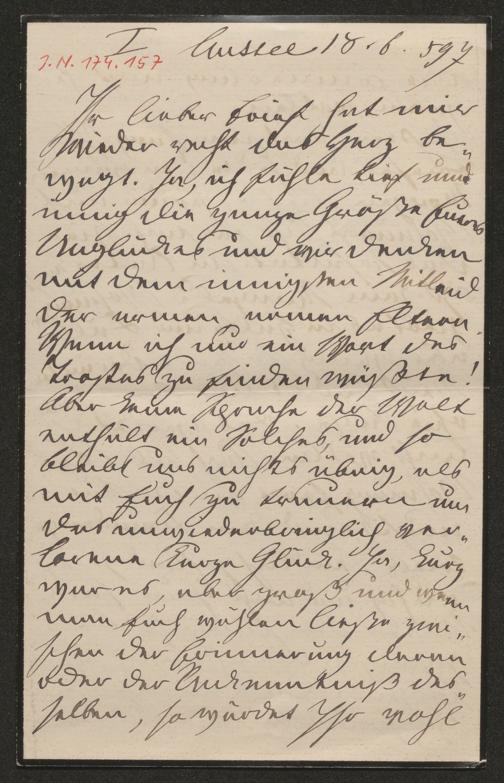 I Aussee 18.6.897
J.N. 174.157
Ihr lieber Brief hat mir
wieder recht das Herz be-
wegt. Ja, ich fühle tief und
innig die ganze Größe Eueres
Unglückes und wir denken
mit dem innigsten Mitleid
der armen armen Eltern.
Wenn ich nur ein Wort des
Trostes zu finden wüßte!
Aber keine Sprache der Welt
enthält ein Solches, und so
bleibt uns nichts übrig, als
mit Euch zu trauern um
das unwiederbringlich ver-
lorene kurze Glück. Ja, kurz
war es, aber groß und wenn
man Euch wählen ließe zwi-
schen der Erinnerung daran
oder der Unkenntniß des-
selben, so würdet Ihr wohl